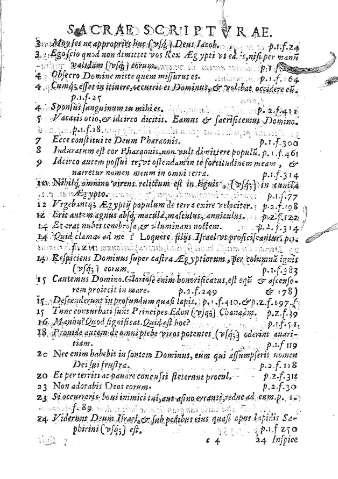 SACRAE SCRIPTVRAE.
3 Moyses ne appropries huc (vsq;) Deus Iacob. p.1.f.24
3 Egoscio quod non dimittet vos Rex Ægypti vt eatis, nisi per manũ
validam (vsq;) eorum. p.1.f.
4 Obsecro Domine mitte quem missurus es. p.1.f.64
4 Cumq; esset in itinere, occurrit ei Dominus, & volebat occidere eũ
p.1.f.25
4 Sponsus sanguinum tu mihi es. p.2.f.412
5 Vacatis otio, & idcirco dicitis. Eamus & sacrificemus Domino.
p.1.f.18.
7 Ecce constitui te Deum Pharaonis. p.1.f.300
8 Induratum est cor Pharaonis, non vult dimittere populũ. p.1.f.461
9 Idcirco autem posui te, vt ostendam in te fortitudinem meam, &
narretur nomen meum in omni terra. p.1.f.314
10 Nihilq; omnino virens relictum est in lignis (vsq;) in cuncta
Ægypto. p.1.f.77
12 Vrgebantq; Ægyptij populum de terra exire velociter. p.2.f.98
12 Erit autem agnus absq; macula, masculus, anniculus. p.2.f.122
14 Et erat nubes tenebrosa, & illuminans noctem. p.2.f.314
14 Quid clamas ad me? Loquere filijs Israel vt proficiscantur. p.1.
14 Respiciens Dominus super castra Ægyptiorum, per columnã ignis
(vsq;) eorum. p.1.f.383
15 Cantemus Domino. Gloriose enim honorificatus est, equũ & ascensorem
proiecit in mare. p.2.f.249 & 178
15 Descenderunt in profundum quasi lapis. p.1.f.410. & p.2.f.197.
15 Tunc conturbati sunt Principes Edon (vsq;) Chanaam. p.2.f.
16 Manhu? Quod significat. Quid est hoc? p.1.f.51.
18 Prouide autem de omni plebe viros potentes (vsq;) oderint auaritiam.
p.1.f.119
20 Nec enim habebit insontem Dominus, eum qui assumpserit nomen
Dei sui frustra. p.2.f.128
20 Et perterriti ac pauore concussi steterunt procul. p.2.f.318
23 Non adorabis Deos eorum. p.2.f.30
23 Si occurreris boui inimici tui, aut asino erranti, reduc ad eum. p.1.
f.89
24 Viderunt Deum Israel, & sub pedibus eius quasi opus lapidis Saphirini
(vsq;) est. p.2.f.431
c 4 24 Inspice